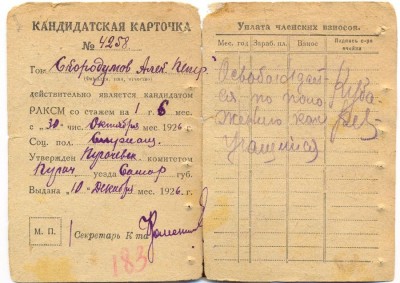 КАНДИДАТСКАЯ КАРТОЧКА
№ 4258
Тов. Сбородумов Алек. Петр.
(Фамилия, имя, отчество)
действительно является кандидатом
РЛКСМ со стажем на 1 г. 6 мес.
с „30“ чис. Октября мес. 1926 г.
Соц. пол.
Утвержден комитетом
уезда Самар губ.
Выдана „10“ Декабря мес. 1926 г.
М. П.
Секретарь К-та
183
Уплата членских взносов.
Мес. год
Зараб. пл.
Взнос
Подпись секр. ячейки
Освобождает-
ся по поло-
жению как
учащийся